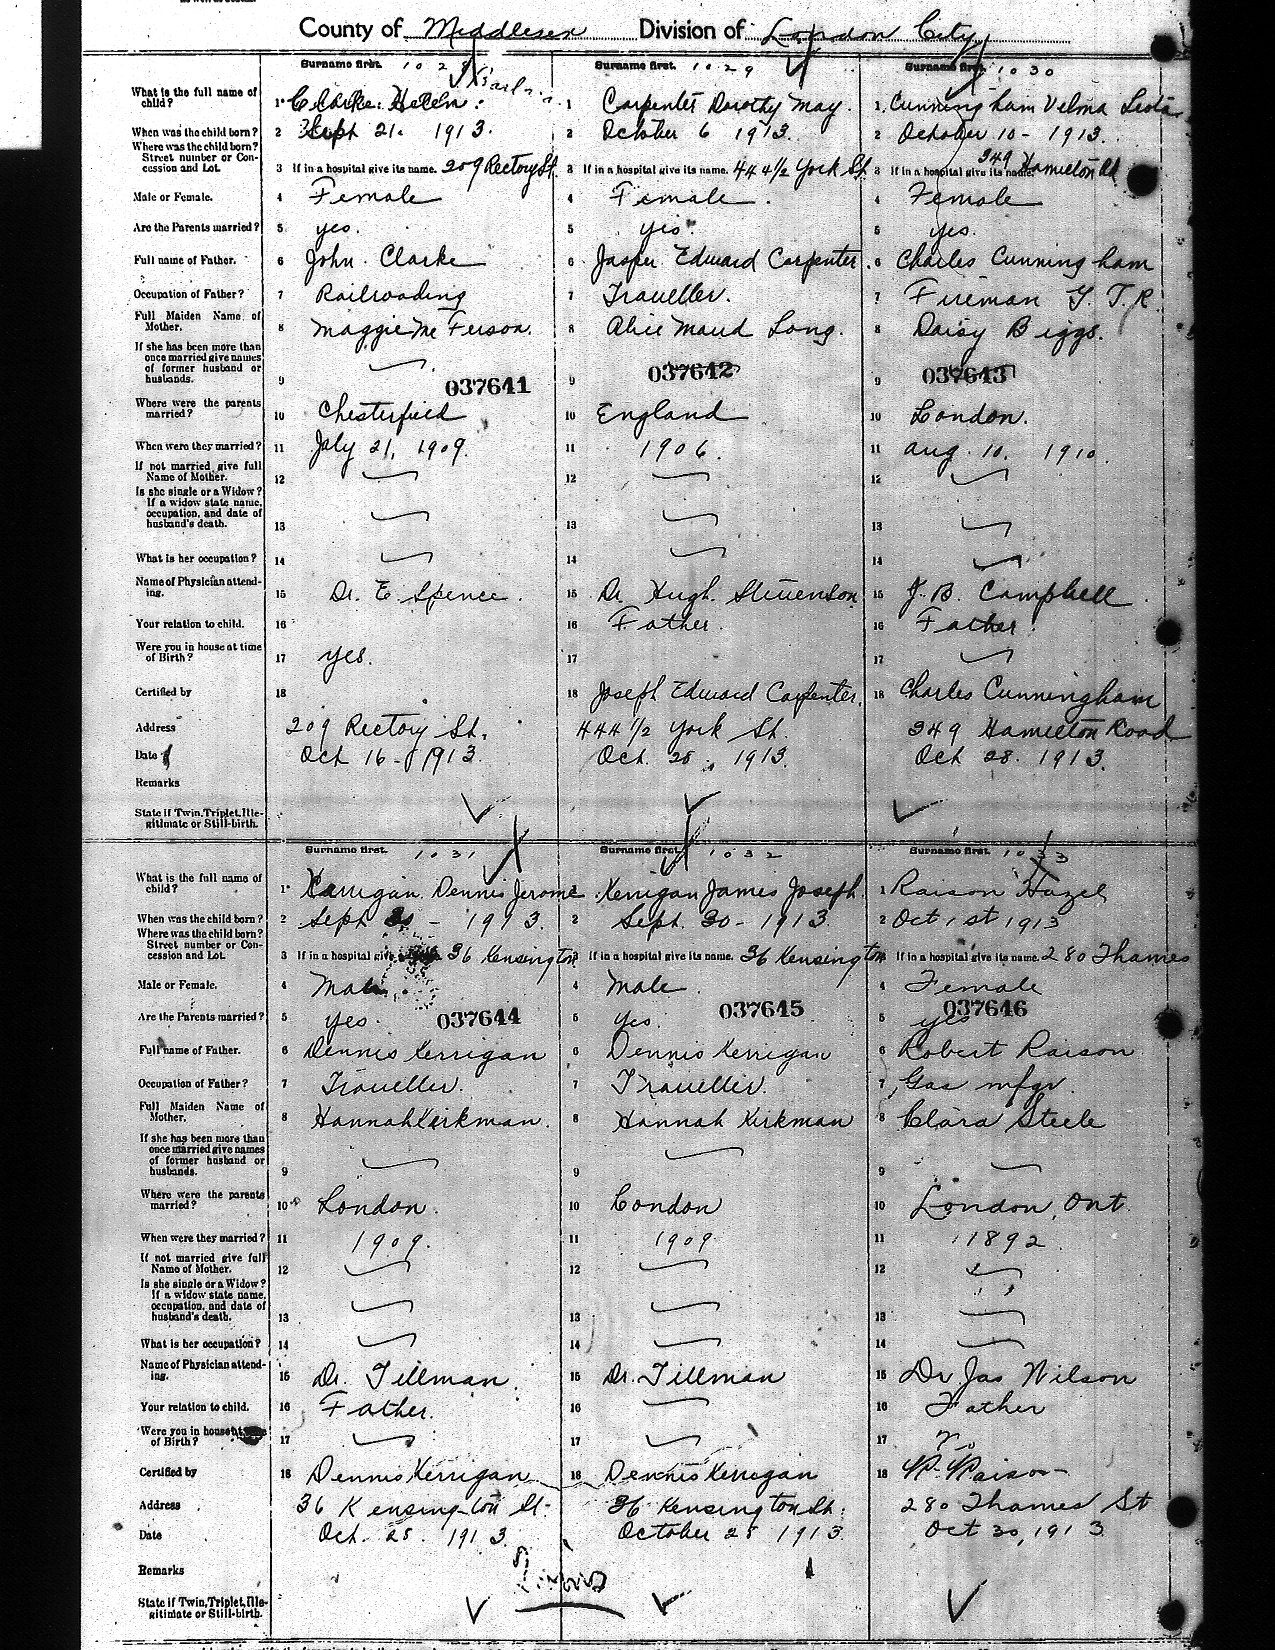 County of Middlesex Division of London City
Surname first. 1028
Surname first. 1029
Surname first. 1030
What is the full name of child?
1 Clarke Helen
1 Carpenter Dorothy May
1 Cunningham Velma Leota
When was the child born?
2 Sept 21. 1913.
2 October 6 1913.
2 October 10 - 1913.
Where was the child born? Street number or Concession and Lot.
3 If in a hospital give its name. 209 Rectory St.
3 If in a hospital give its name. 444 1/2 York St.
3 If in a hospital give its name. 349 Hamilton Rd
Male or Female.
4 Female
4 Female.
4 Female
Are the Parents married?
5 yes.
5 yes.
5 yes.
Full name of Father.
6 John Clarke
6 Jasper Edward Carpenter.
6 Charles Cunningham
Occupation of Father?
7 Railroading
7 Traveller.
7 Fireman G. T. R.
Full Maiden Name of Mother.
8 Maggie Mc Ferson.
8 Alice Maud Long.
8 Daisy Biggs.
If she has been more than once married give names of former husband or husbands.
9 037641
9 037642
9 037643
Where were the parents married?
10 Chesterfield
10 England
10 London.
When were they married?
11 July 21, 1909.
11 1906.
11 Aug. 10. 1910.
If not married give full Name of Mother.
12
12
12
Is she single or a Widow? If a widow state name, occupation, and date of husband's death.
13
13
13
What is her occupation?
14
14
14
Name of Physician attending.
15 Dr. E. Spence.
15 Dr. Hugh Stevenson
15 J. B. Campbell
Your relation to child.
16
16 Father.
16 Father.
Were you in house at time of Birth?
17 yes.
17
17
Certified by
18
18 Joseph Edward Carpenter.
18 Charles Cunningham
Address
209 Rectory St.
444 1/2 York St.
349 Hamilton Road
Date
Oct 16 - 1913.
Oct. 28, 1913.
Oct 28. 1913.
Remarks
State if Twin, Triplet, Illegitimate or Still-birth.
Surname first. 1031
Surname first. 1032
Surname first. 1033
What is the full name of child?
1 Kerrigan Dennis Jerome
1 Kerrigan James Joseph
1 Raison Hazel
When was the child born?
2 Sept 30 - 1913.
2 Sept. 30 - 1913
2 Oct 1st 1913
Where was the child born? Street number or Concession and Lot.
3 If in a hospital give its name. 36 Kensington
3 If in a hospital give its name. 36 Kensington
3 If in a hospital give its name. 280 Thames
Male or Female.
4 Male.
4 Male.
4 Female
Are the Parents married?
5 yes. 037644
5 yes. 037645
5 yes 037646
Full name of Father.
6 Dennis Kerrigan
6 Dennis Kerrigan
6 Robert Raison
Occupation of Father?
7 Traveller.
7 Traveller.
7 Gas mfgr.
Full Maiden Name of Mother.
8 Hannah Kirkman.
8 Hannah Kirkman
8 Clara Steele
If she has been more than once married give names of former husband or husbands.
9
9
9
Where were the parents married?
10 London.
10 London
10 London, Ont.
When were they married?
11 1909.
11 1909
11 1892
If not married give full Name of Mother.
12
12
12
Is she single or a Widow? If a widow state name, occupation, and date of husband's death.
13
13
13
What is her occupation?
14
14
14
Name of Physician attending.
15 Dr. Tillman.
15 Dr. Tillman
15 Dr Jas Wilson
Your relation to child.
16 Father.
16
16 Father
Were you in house at time of Birth?
17
17
17 No
Certified by
18 Dennis Kerrigan
18 Dennis Kerrigan
18 R. Raison
Address
36 Kensington St.
36 Kensington St.
280 Thames St
Date
Oct. 28. 1913.
October 28 1913
Oct 30, 1913
Remarks
Twins
State if Twin, Triplet, Illegitimate or Still-birth.